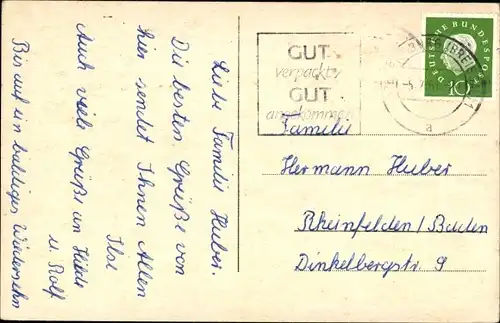 Liebe Familie Huber.
Die besten Grüße von
hier sendet Ihnen Allen
Ilse
Auch viele Grüße an Hilde
u. Rolf
Bis auf ein baldiges Wiedersehn
GUT
verpackt
GUT
angekommen
DEUTSCHE BUNDESPOST
10
a
Familie
Hermann Huber
Rheinfelden/Baden
Dinkelbergstr. 9